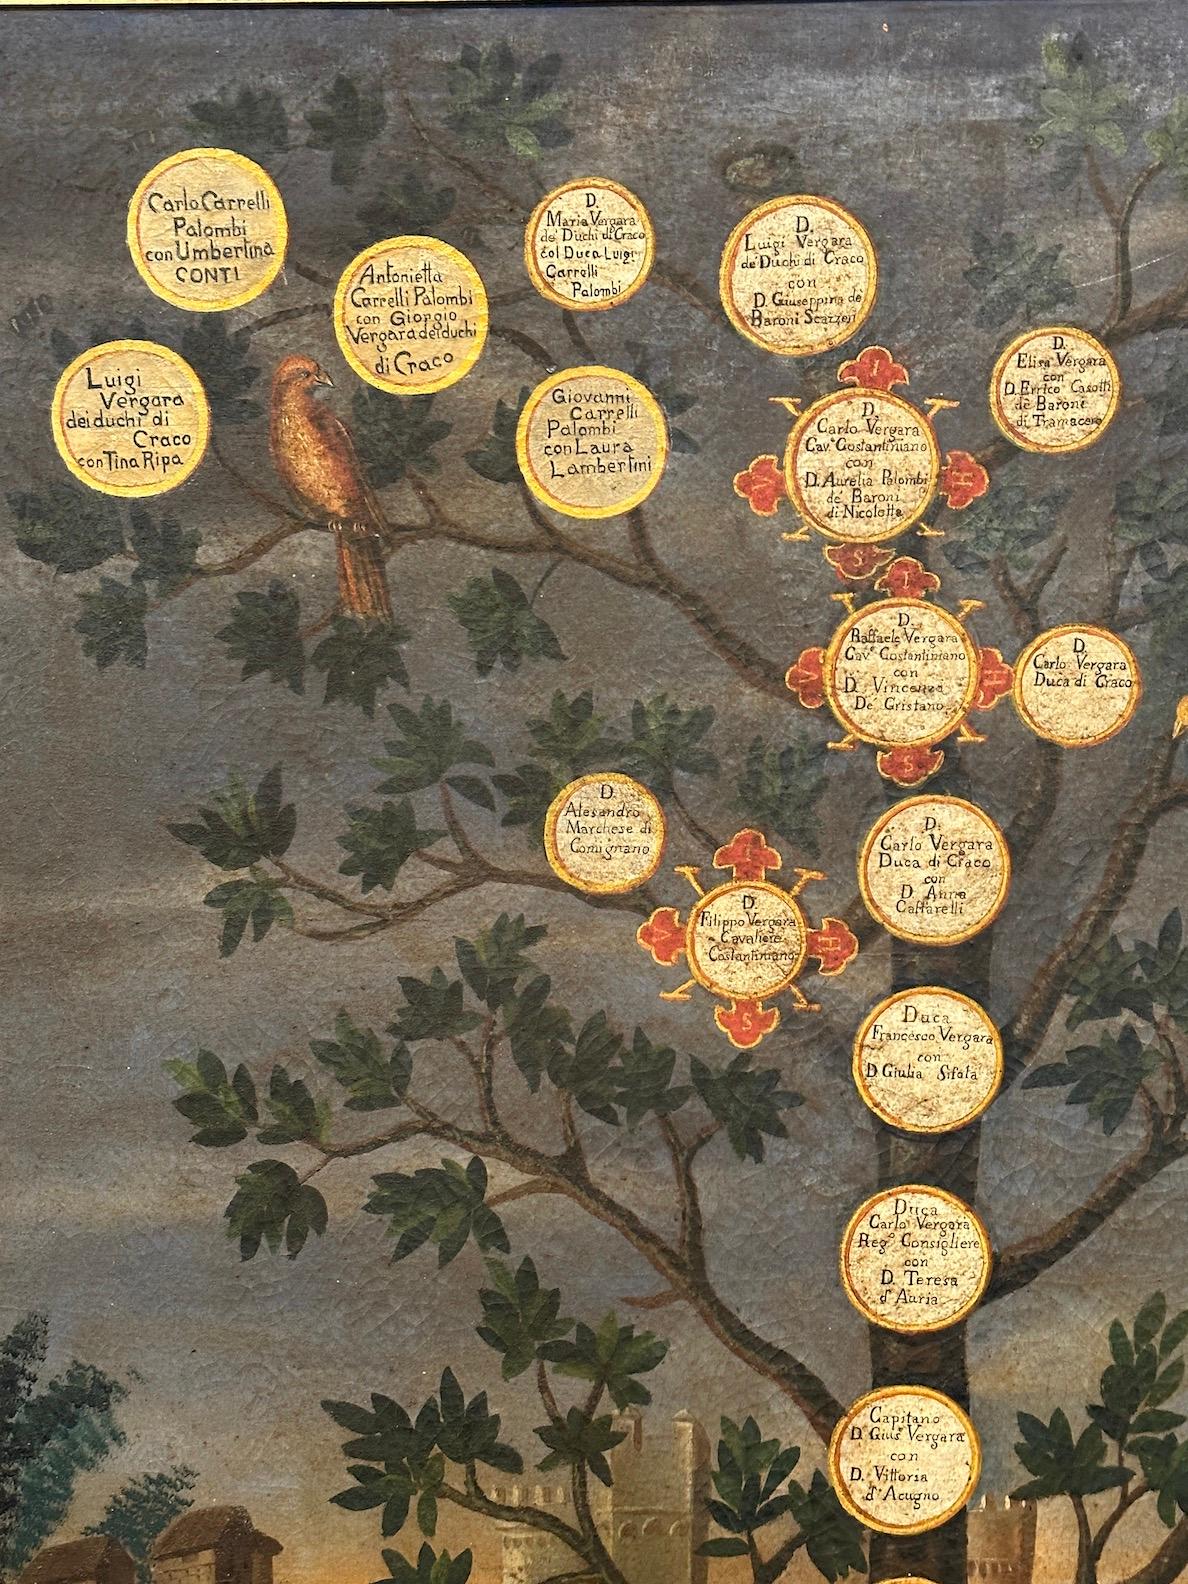 Carlo Carrelli
Palombi
con Umbertina
CONTI
Antonietta
Carrelli Palombi
con Giorgio
Vergara dei duchi
di Craco
D.
Maria Vergara
de' Duchi di Craco
col Duca Luigi
Carrelli
Palombi
D.
Luigi Vergara
de' Duchi di Craco
con
D. Giuseppina de'
Baroni Scazzeri
Luigi
Vergara
dei duchi di
Craco
con Tina Ripa
Giovanni
Carrelli
Palombi
con Laura
Lambertini
D.
Elisa Vergara
con
D. Errico Casotti
de' Baroni
di Tramacere
I
V
H
S
D.
Carlo Vergara
Cav.e Costantiniano
con
D. Aurelia Palombi
de' Baroni
di Nicolette
I
V
H
S
D.
Raffaele Vergara
Cav.e Costantiniano
con
D. Vincenza
De Cristano
D.
Carlo Vergara
Duca di Craco
D.
Alesandro
Marchese di
Comignano
I
V
H
S
D.
Filippo Vergara
Cavaliere
Costantiniano
D.
Carlo Vergara
Duca di Craco
con
D. Anna
Caffarelli
Duca
Francesco Vergara
con
D. Giulia Sifola
Duca
Carlo Vergara
Reg.o Consigliere
con
D. Teresa
d'Auria
Capitano
D. Gius.e Vergara
con
D. Vittoria
d'Acugno